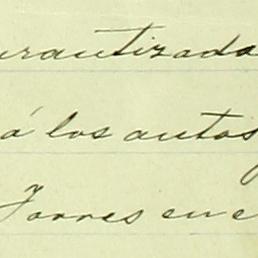 urantizada
á los autos
Torres en e